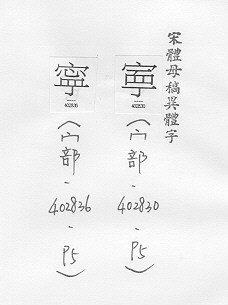 宋體母稿異體字
（宀部-402830-P5）
寧
402836
（宀部-402836-P5）